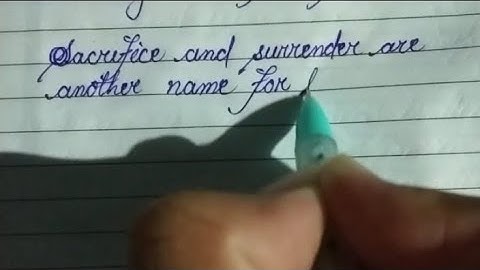 Sacrifice and surrender are
another name for